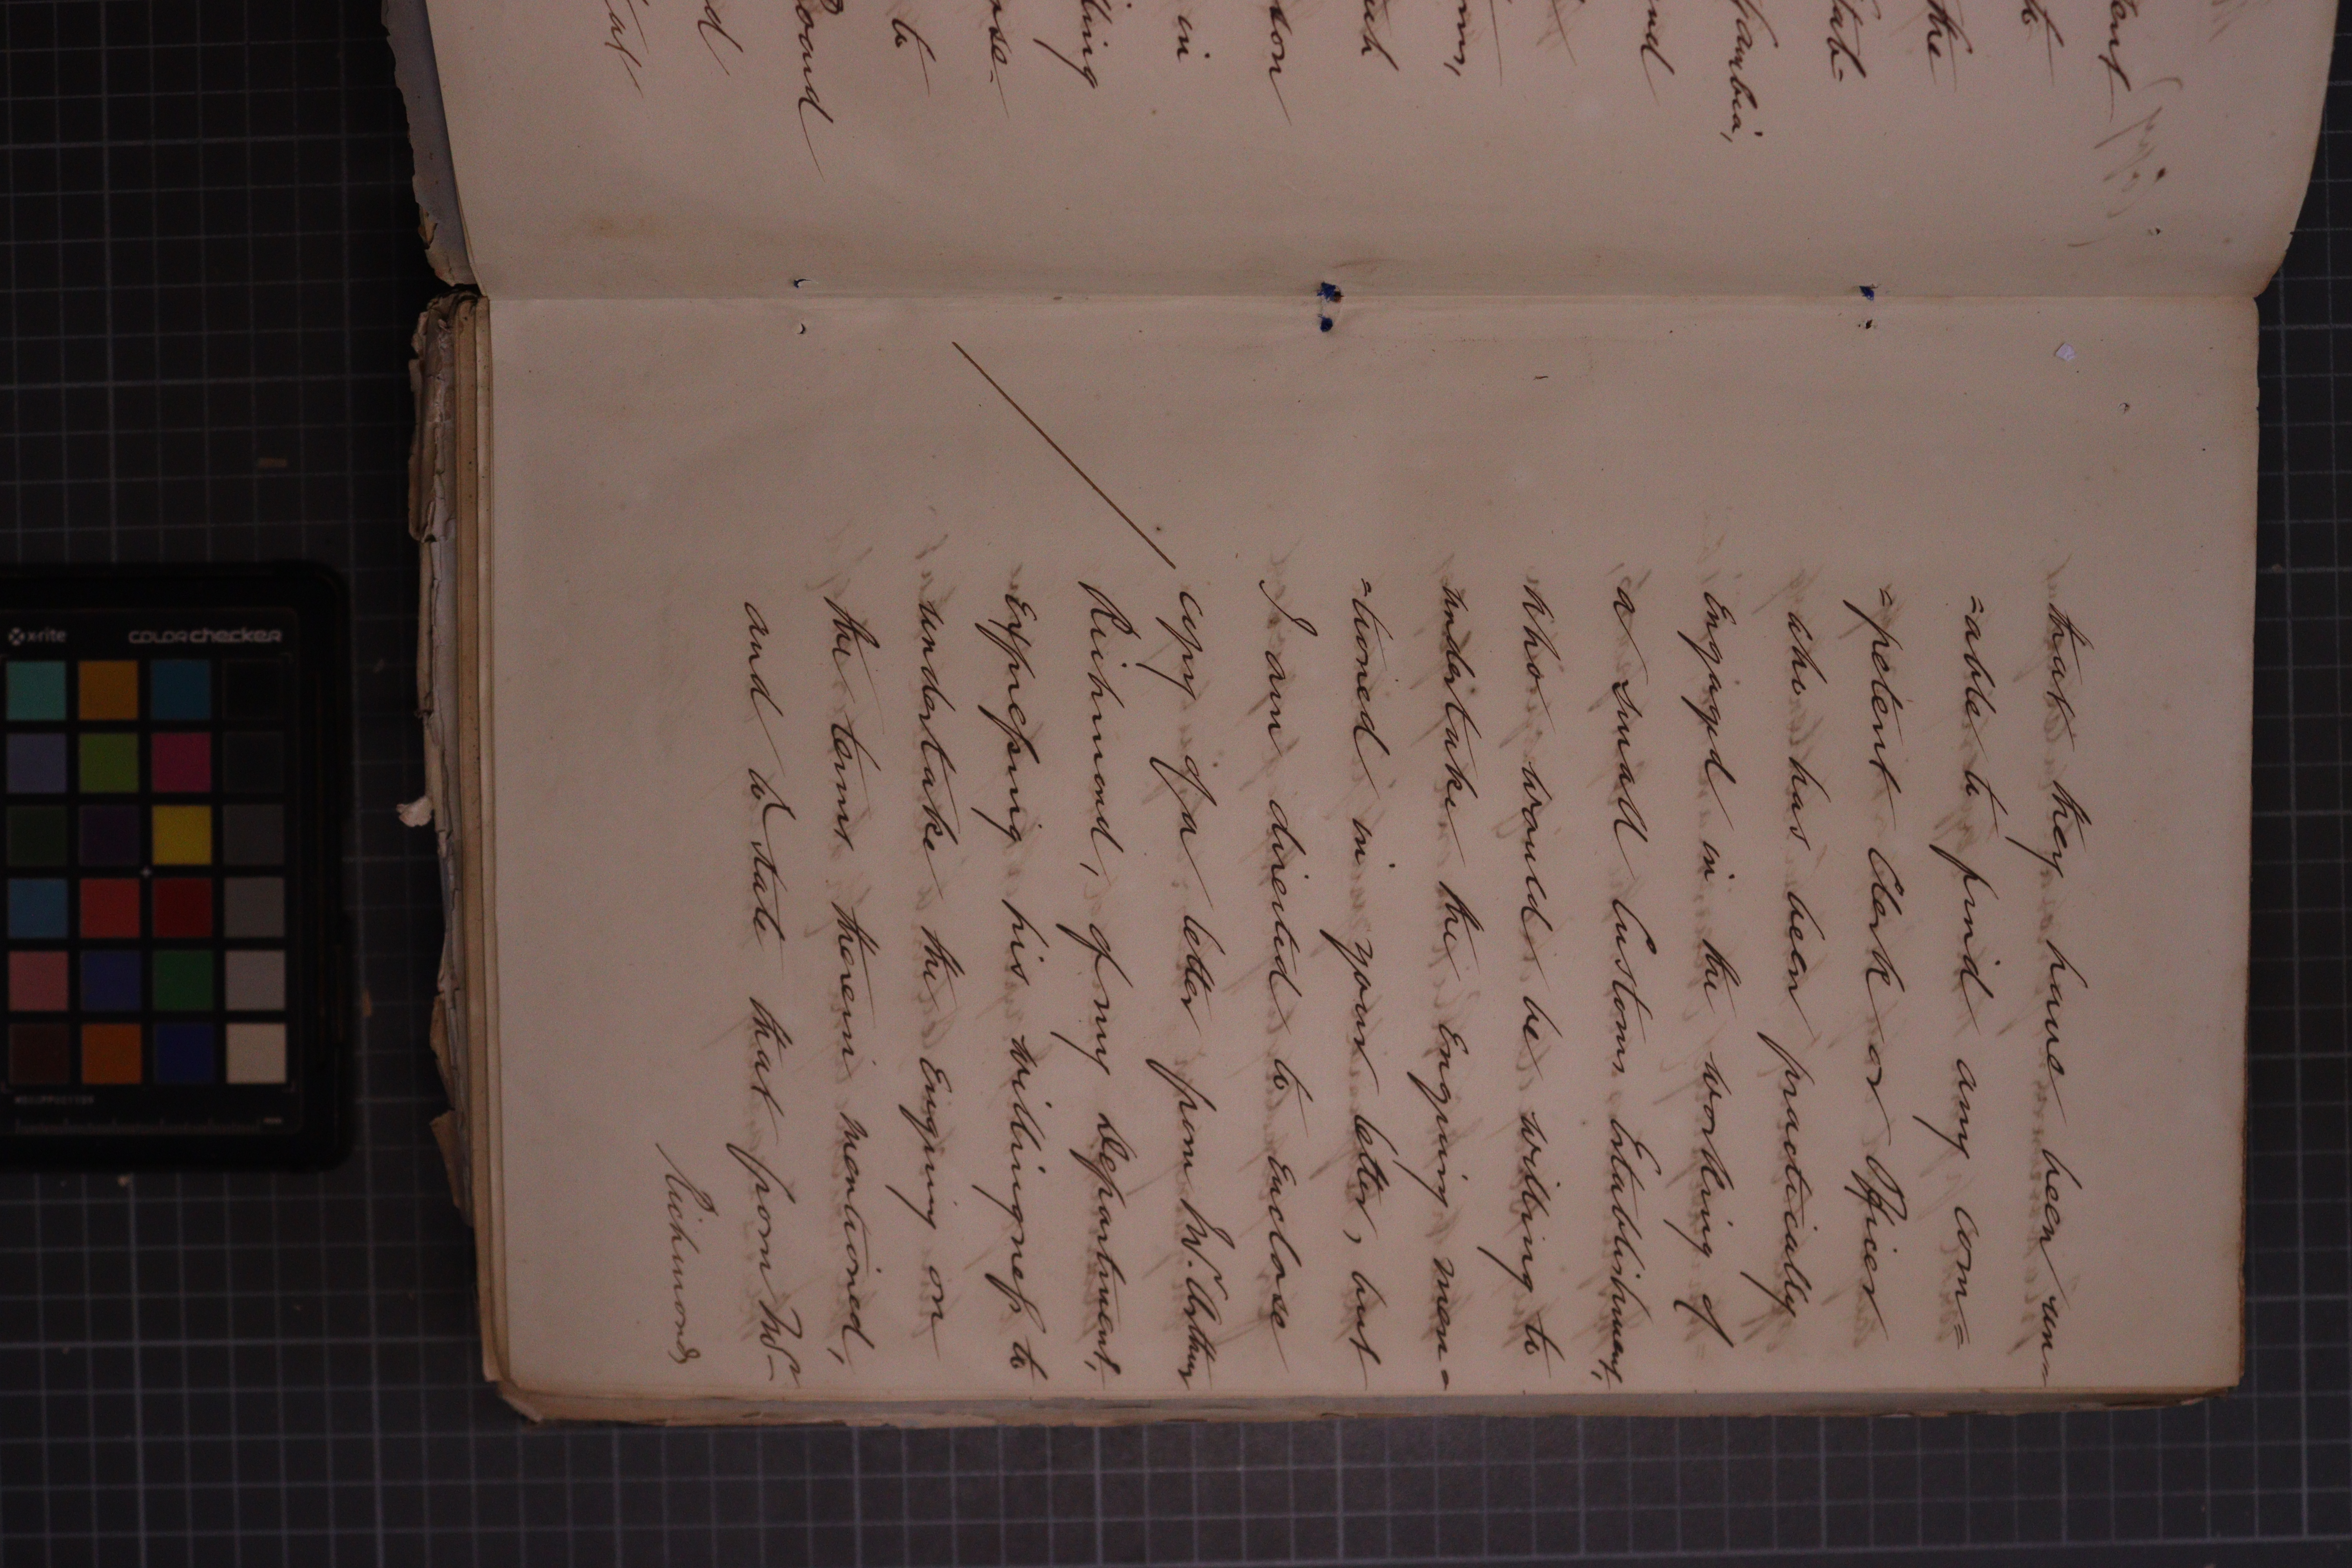 tent
to
the
stab-
Gambia,
and
such
in
-ling
to
Board
that they have been un-
=able to find any com=
=petent Clerk or Officer
who has been practically
Engaged in the working of
a small Customs Establishment,
who would be willing to
undertake the Enquiry men=
=tioned in your letter, but
I am directed to Enclose
copy of a letter from Mr. Arthur
Richmond, of my Department,
Expressing his willingness to
undertake the Enquiry on
the terms therein mentioned,
and to state that from Mr
Richmond's
x-rite
COLORchecker